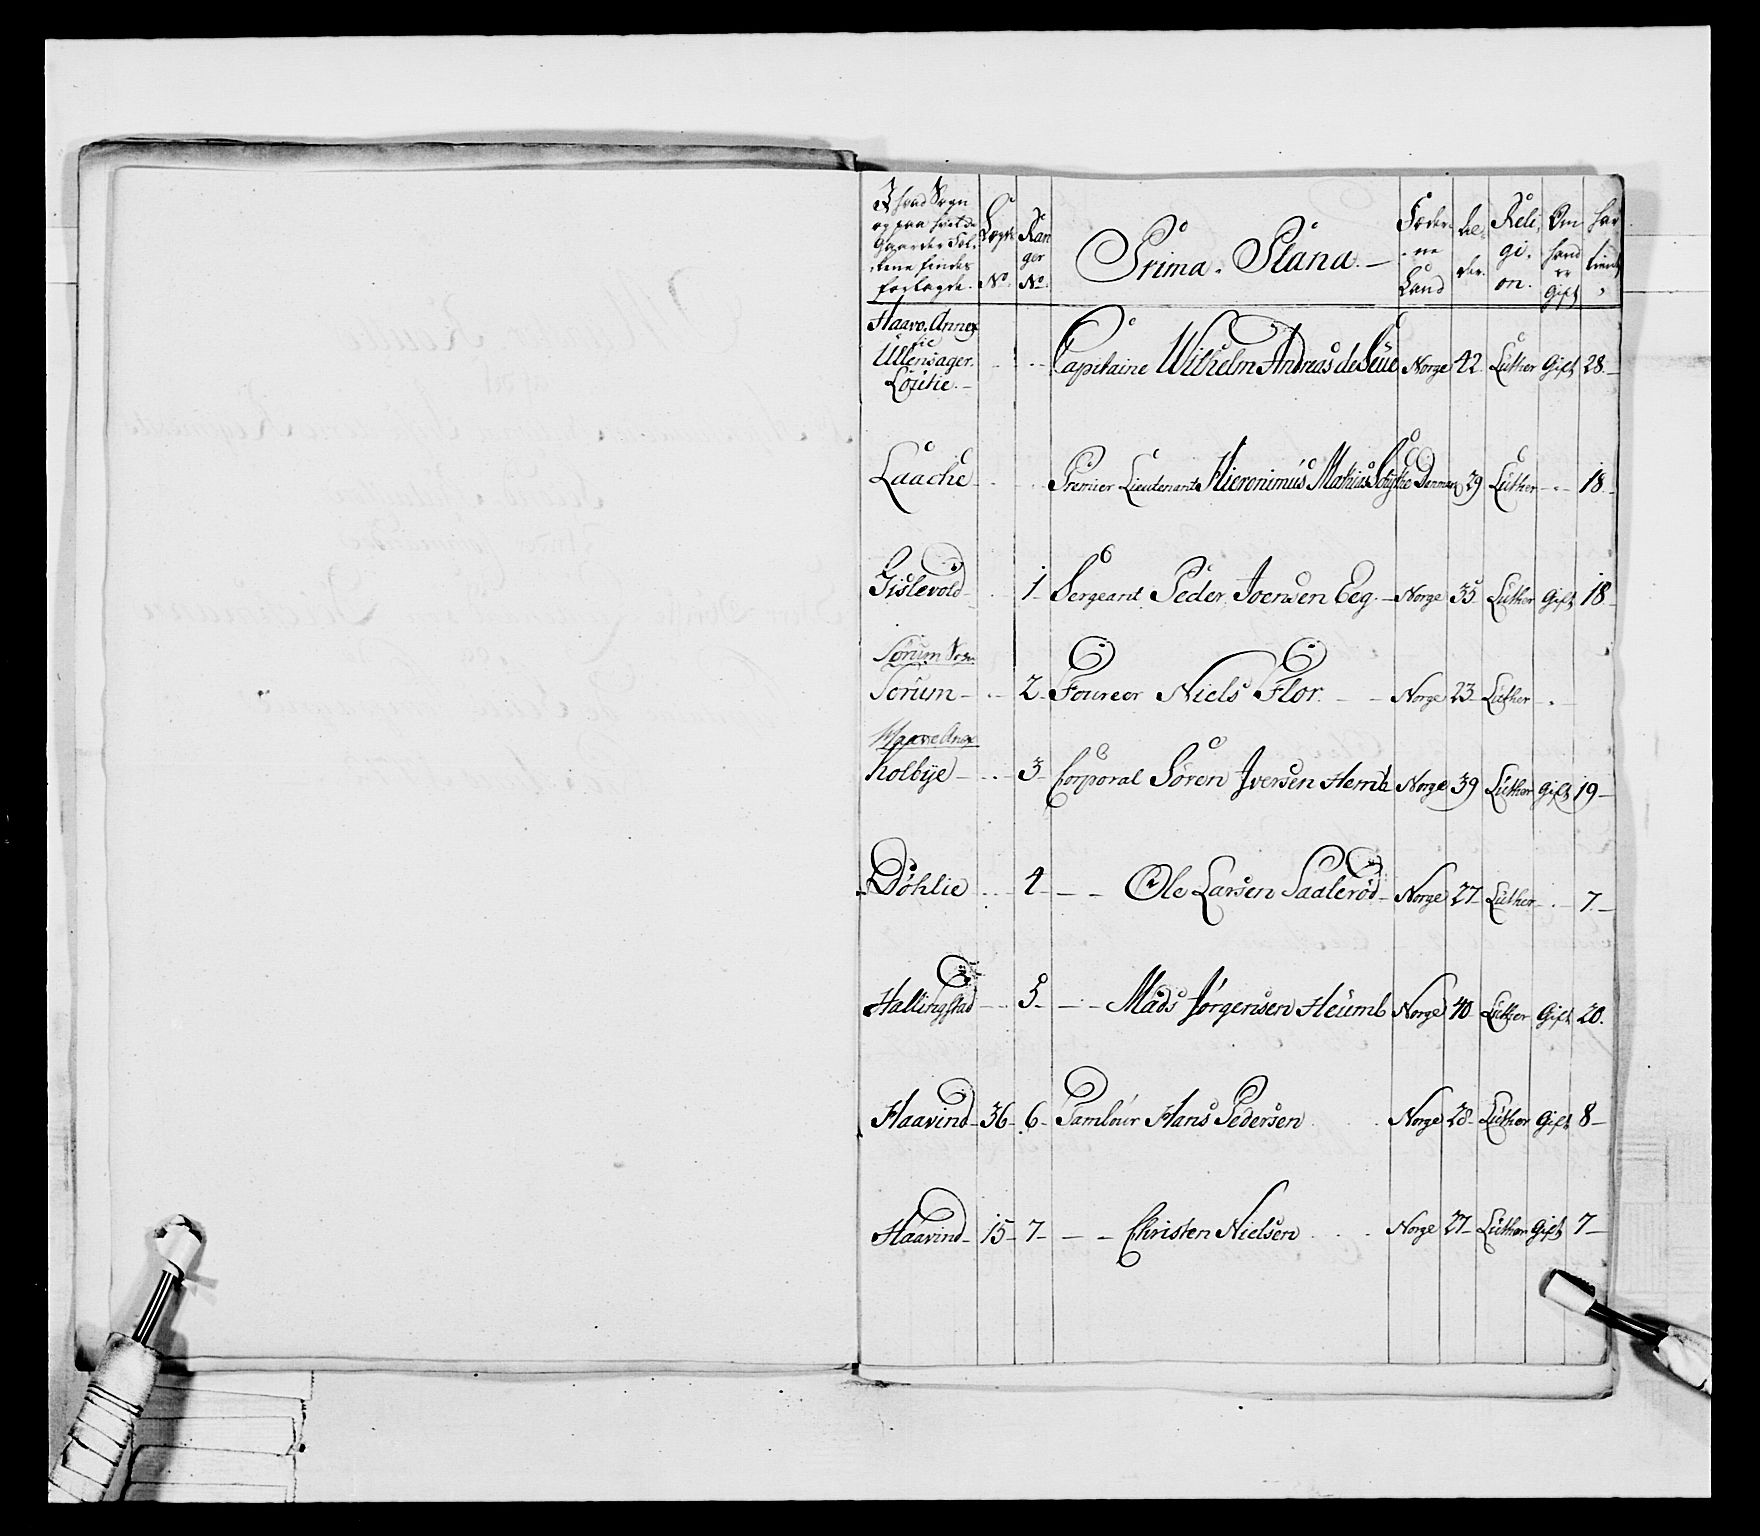 I hvad Sogn
og paa hvilde
Gaarder Sol¬
datene findes
forlagde.
Lægds
No.
Ran
ger
No.
Prima. Plana.
Føder
ne
Land
Al¬
der.
Reli
gi¬
on.
Om
hand
er
Gift
har
tient
Haavo. Annex
Ullensager.
Loutie Capitaine Wilhelm Andreas de Seue Norge 42 Luther Gift 28.
Laache Premier Lieutenant Hieronimus Mathias Danmark 29 Luther 18
Gislevold 1 Sergeant Peder Joensen Eeg. Norge 35 Luther Gift 18
Sørum Sogn
Sørum 2 Foureer Niels Flor. Norge 23 Luther
Haavo Anex
Kolbye 3 Corporal Søren Iversen Hemb Norge 39 Luther Gift 19
Døhlie 4 Ole Larsen Saalerød Norge 27 Luther 7
Hallingstad 5 Mads Jørgensen Heumb Norge 40 Luther Gift 20.
Haavind 36 6 Tambour Hans Pedersen Norge 28 Luther Gift 8
Haavind 15 7 Christen Nielsen Norge 27 Luther Gift 7